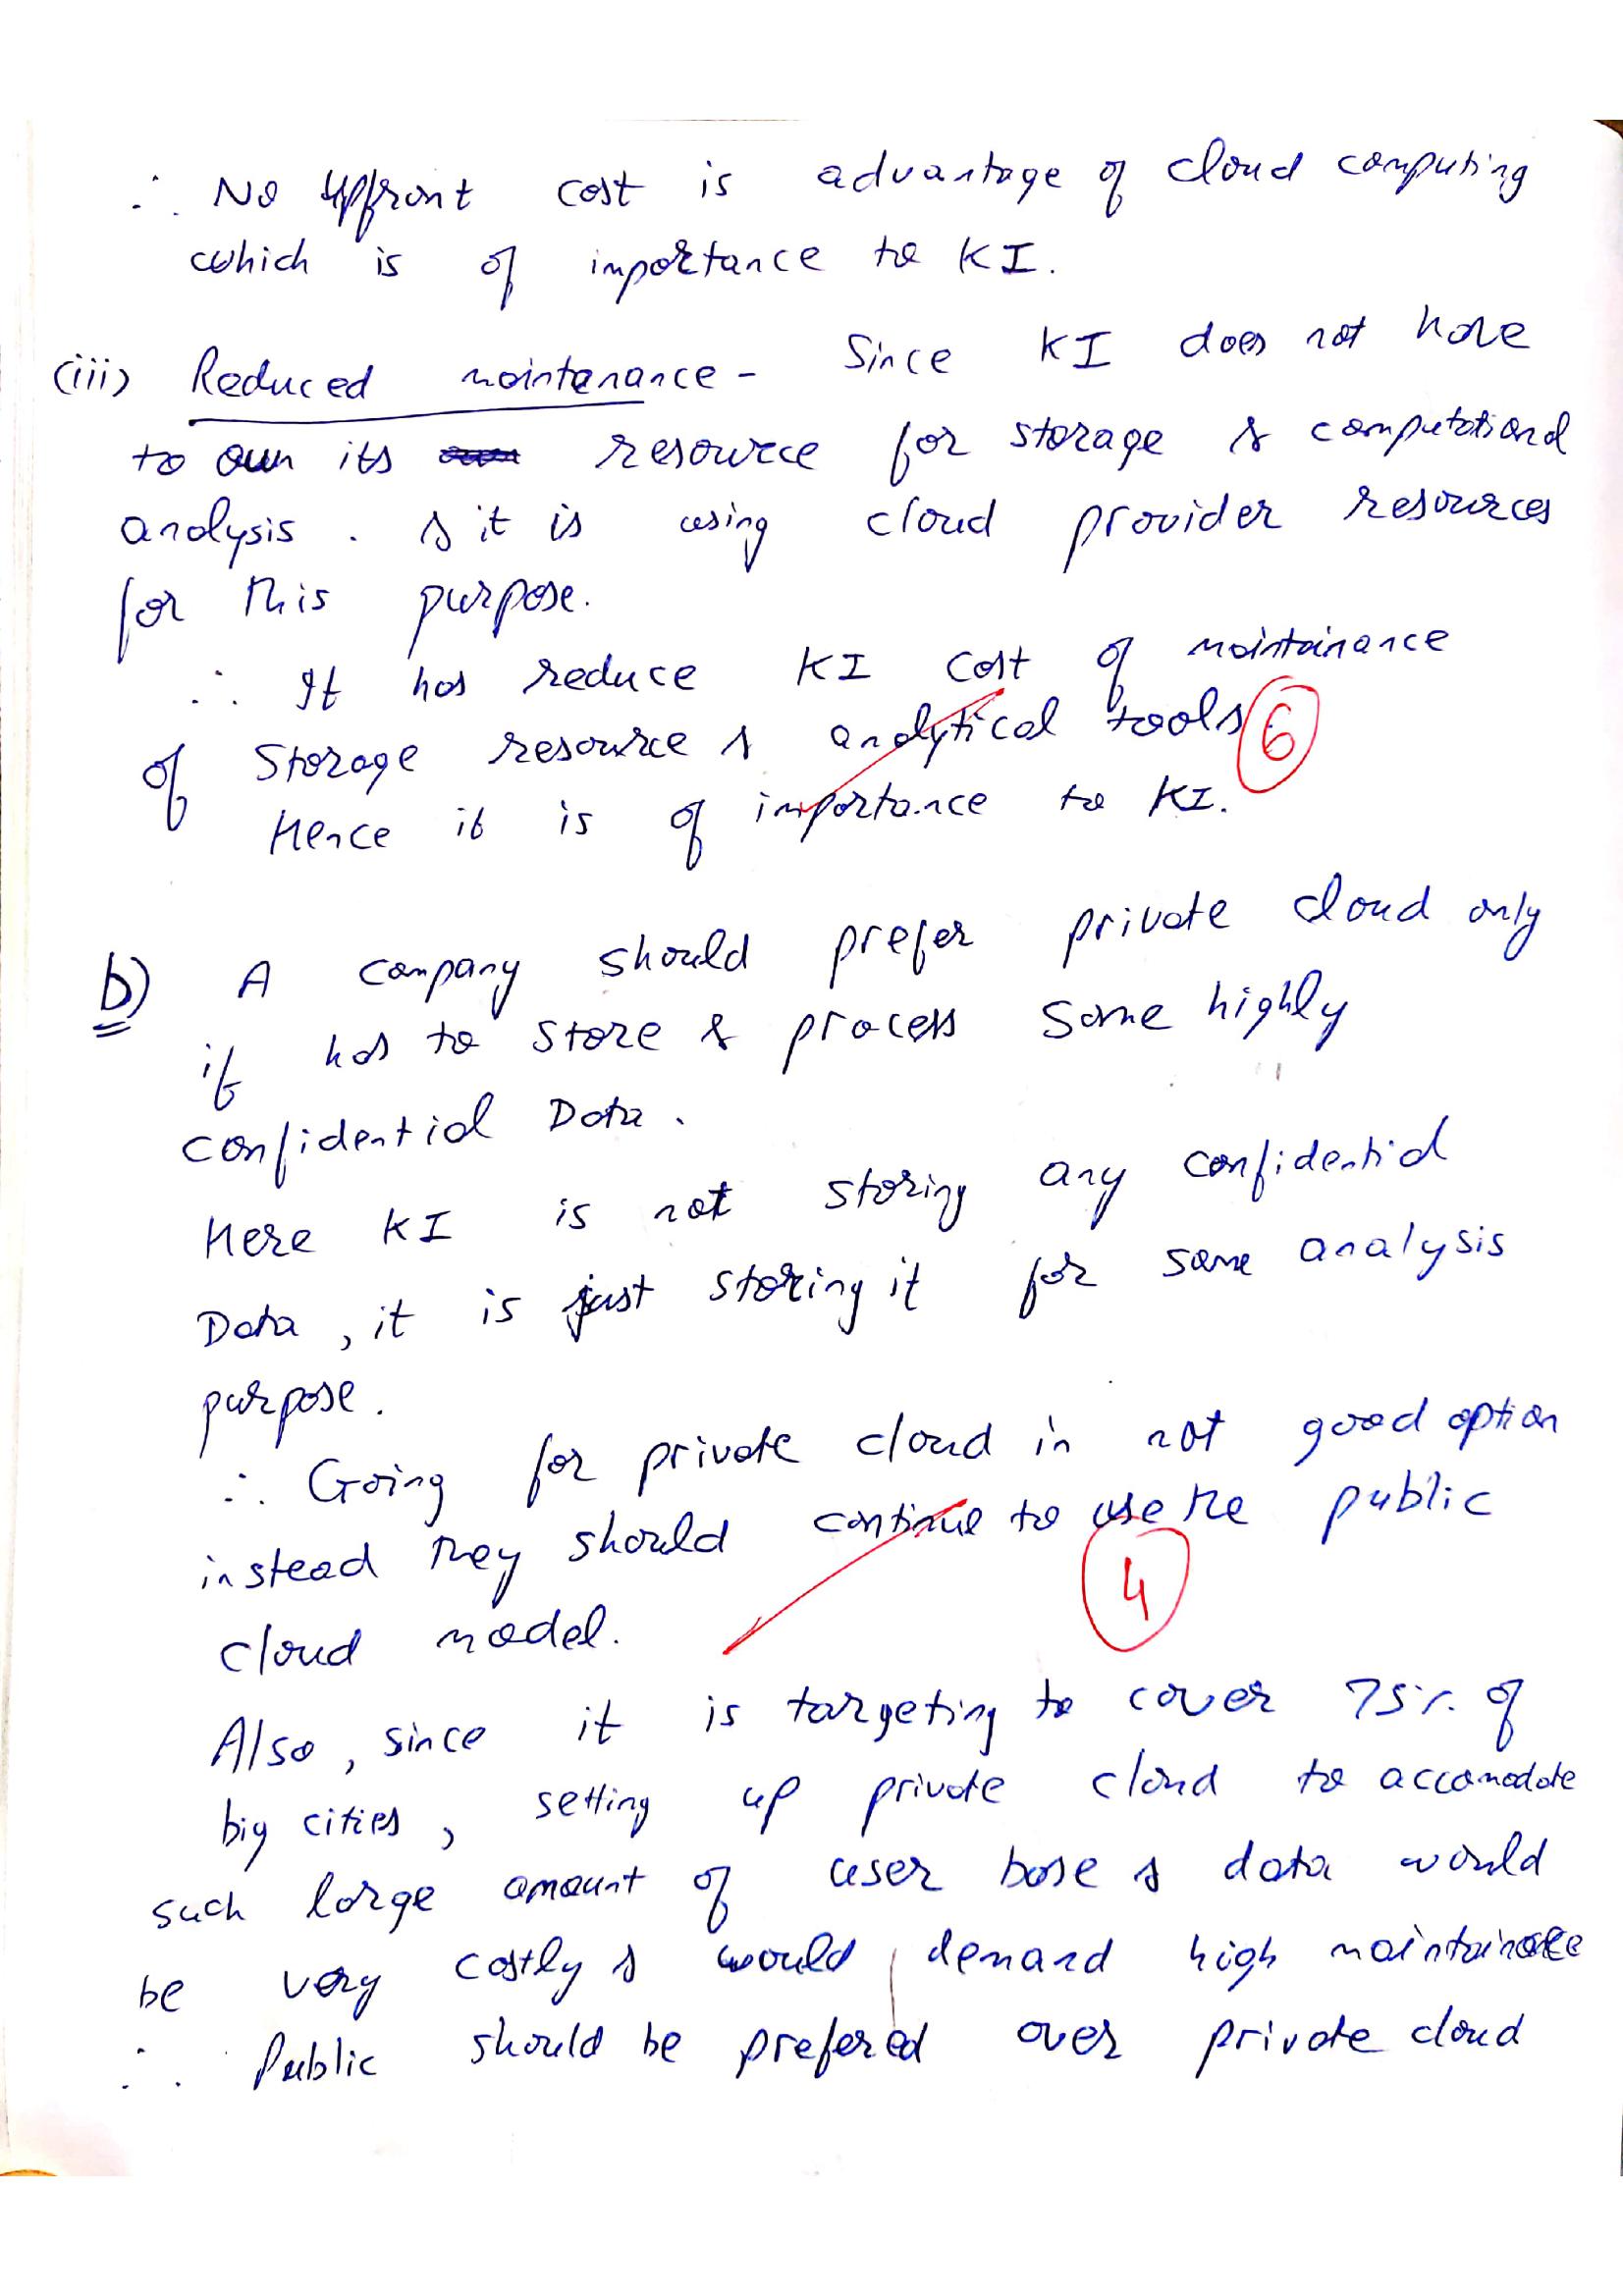 ∴ No upfront cost is advantage of cloud computing
which is of importance to KI.
(iii) Reduced maintenance - Since KI does not have
to own its resource for storage & computational
analysis. & it is using cloud provider resources
for this purpose.
∴ It has reduce KI cost of maintainance
of storage resource & analytical tools
6
Hence it is of importance to KI.
b) A company should prefer private cloud only
if has to store & process some highly
confidential Data.
Here KI is not storing any confidential
Data, it is just storing it for some analysis
purpose.
∴ Going for private cloud in not good option
instead they should continue to use the public
4
cloud model.
Also, since it is targeting to cover 75% of
big cities, setting up private cloud to accomodate
such large amount of user base & data would
be very costly & would demand high
∴ Public should be prefered over private cloud